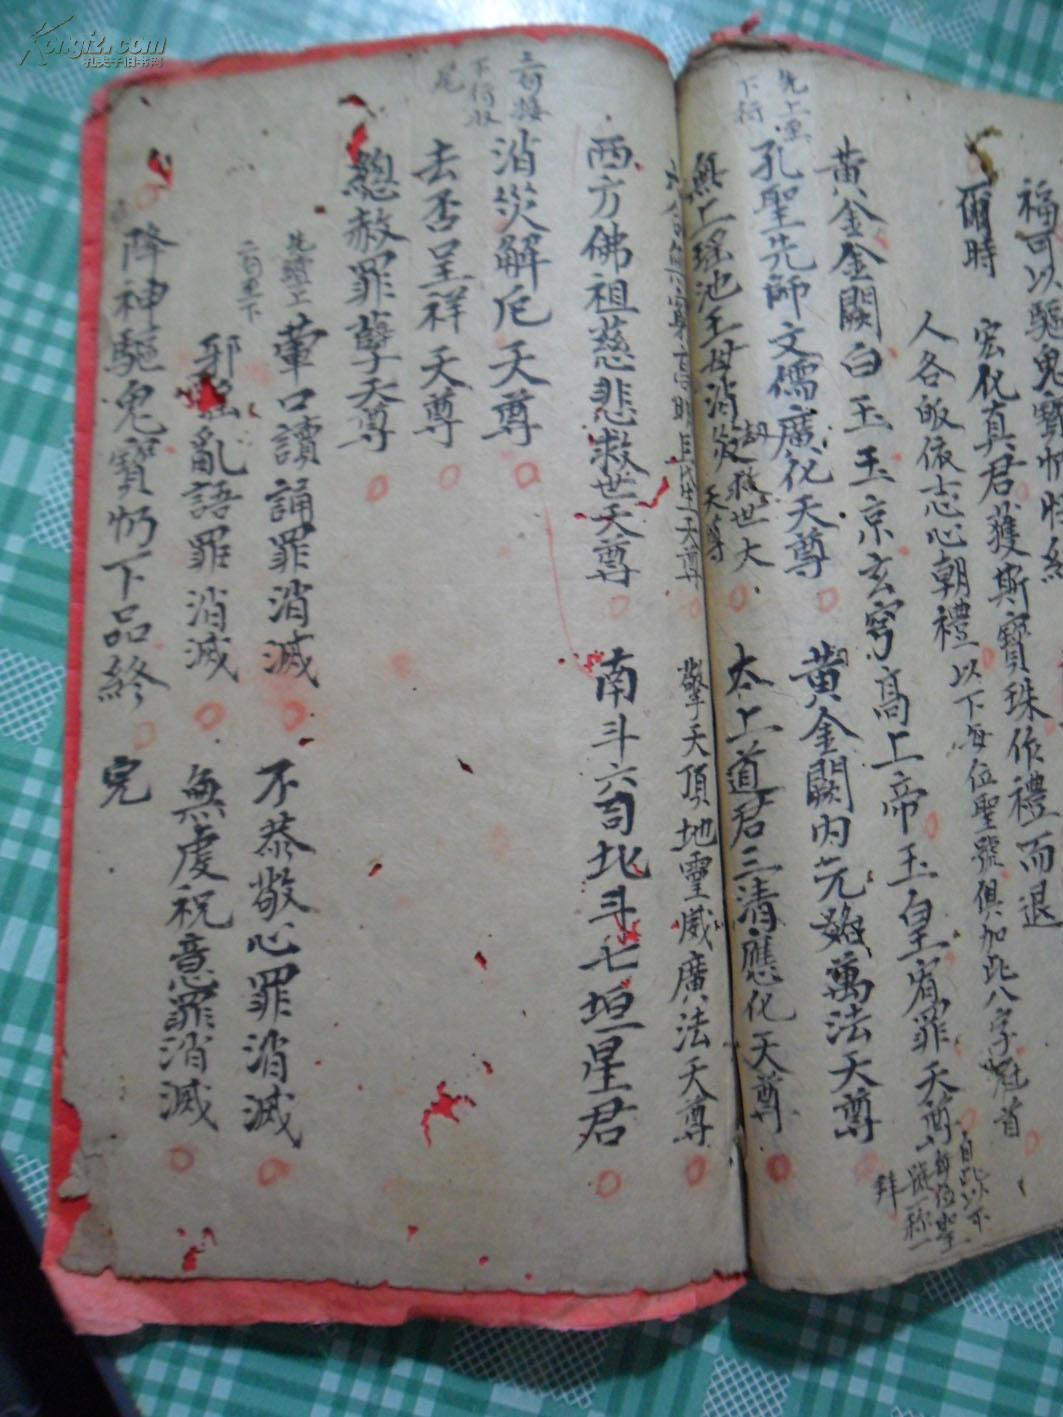 福可以驅鬼寶
爾時
宏化真君獲斯寶珠作禮而退
人各皈依志心朝禮以下每位聖號俱加此八字冠首
黃金金闕白玉玉京玄穹高上帝玉皇宥罪天尊
自此以下
每位聖
號一称一
拜
先上壹
下行
孔聖先師文儒廣化天尊
黃金闕内元始萬法天尊
無上瑤池王母消災
救世大
天尊
太上道君三清應化天尊
擎天頂地靈威廣法天尊
西方佛祖慈悲救世天尊
南斗六司北斗七垣星君
消災解厄天尊
去否呈祥天尊
總赦罪孽天尊
葷口讀誦罪消滅
不恭敬心罪消滅
亂語罪消滅
無虔祝意罪消滅
降神驅鬼寶忏下品終
完
Kongfz.com
孔夫子旧书网